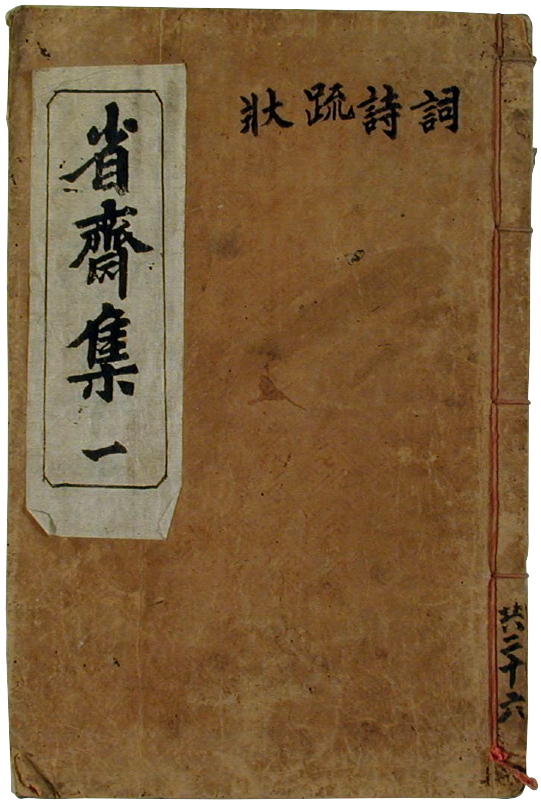 省齋集一
詞詩疏狀
共二十六